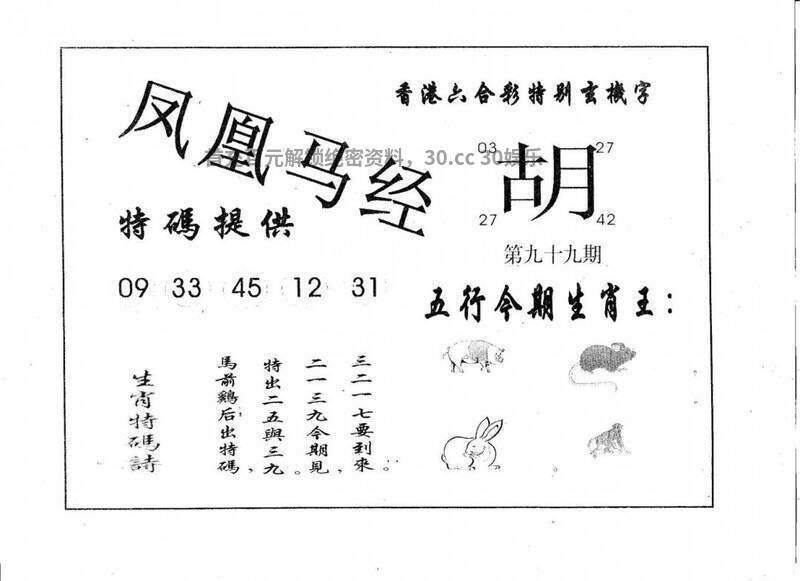 香港六合彩特别玄機字
凤凰马经
首充百元解锁绝密资料，30.cc 30娱乐
03 27
胡
27 42
特碼提供
第九十九期
09 33 45 12 31
五行今期生肖王：
生肖特碼詩
馬前鷄后出特碼，
特出二五與三九。
二一三九今期見，
三二一七要到來。